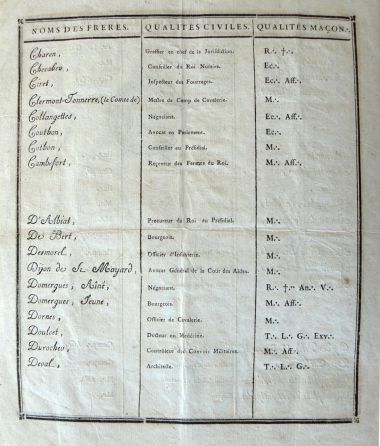 NOMS DES FRERES. QUALITÉS CIVILES. QUALITÉS MAÇON∴
Charen, Greffier en chef de la Jurisdiction. R∴ †∴
Chevalier, Conseiller du Roi Notaire. Ec∴
Ciret, Inspecteur des Fourrages. Ec∴ Aff∴
Clermont-Tonnerre, (le Comte de) Mestre de Camp de Cavalerie. M∴
Collangettes, Négociant. Ec∴ Aff∴
Couthon, Avocat en Parlement. Ec∴
Cothon, Conseiller au Présidial. M∴
Cambefort, Receveur des Fermes du Roi. M∴ Aff∴
D'Albiat, Procureur du Roi au Présidial. M∴
De Bert, Bourgeois. M∴
Desmorel, Officier d'Infanterie. M∴
Dijon de St. Mayard, Avocat Général de la Cour des Aides. M∴
Domergues, Aîné, Négociant. R∴ †∴ An∴ V∴
Domergues, Jeune, Bourgeois. M∴ Aff∴
Dornes, Officier de Cavalerie. M∴
Doulcet, Docteur en Medécine. T∴ L∴ G∴ Exv∴
Durocher, Contrôleur des Convois Militaires. M∴ Aff∴
Deval, Architecte. T∴ L∴ G∴